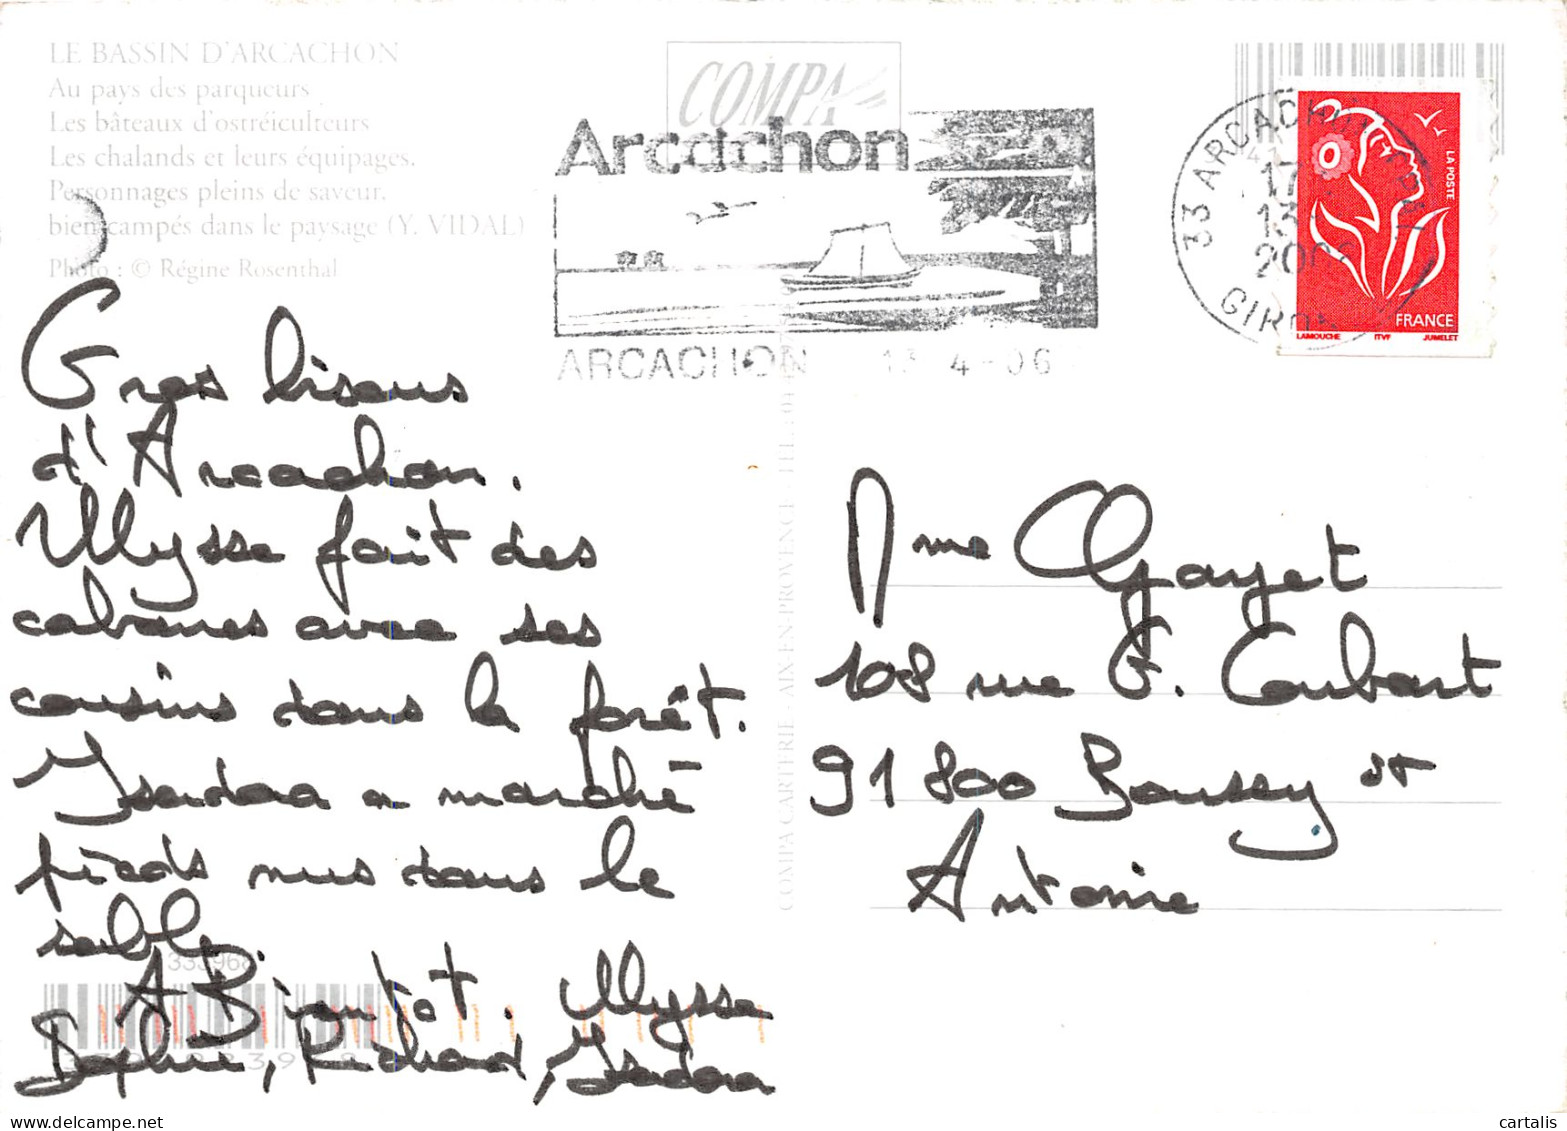 LE BASSIN D'ARCACHON
Au pays des parqueurs
Les bâteaux d'ostréiculteurs
Les chalands et leurs équipages.
Personnages pleins de saveur.
bien campés dans le paysage (Y. VIDAL)
Photo : © Régine Rosenthal
Gros bisous
d'Arcachon.
Ulysse fait des
cabanes avec ses
cousins dans la forêt.
Isadora a marché
pieds nus dans le
sable.
A Bientôt. Ulysse
Sophie, Richard, Isadora
COMPA
Arcachon
ARCACHON 13-4-06
COMPA CARTERIE - AIX-EN-PROVENCE
33 ARCACHON
LA POSTE
FRANCE
LAMOUCHE ITVF JUMELET
Mme Gayet
108 rue G. Courbart
91 800 Boussy st
Antoine
cartalis